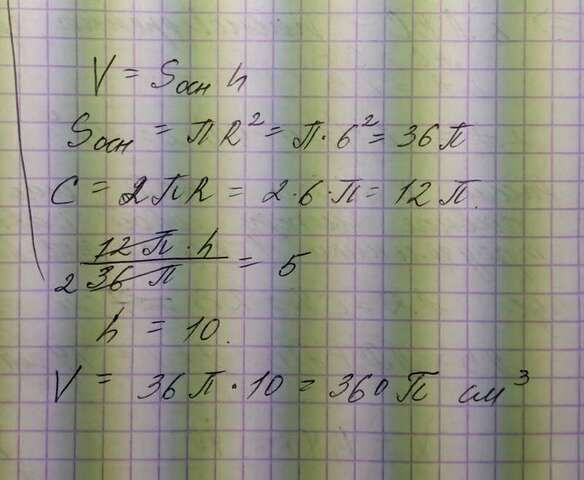 V = Sосн h
Sосн = πR² = π·6² = 36π
C = 2πR = 2·6·π = 12π.
12π·h
2 36π = 5
h = 10.
V = 36π·10 = 360π см³